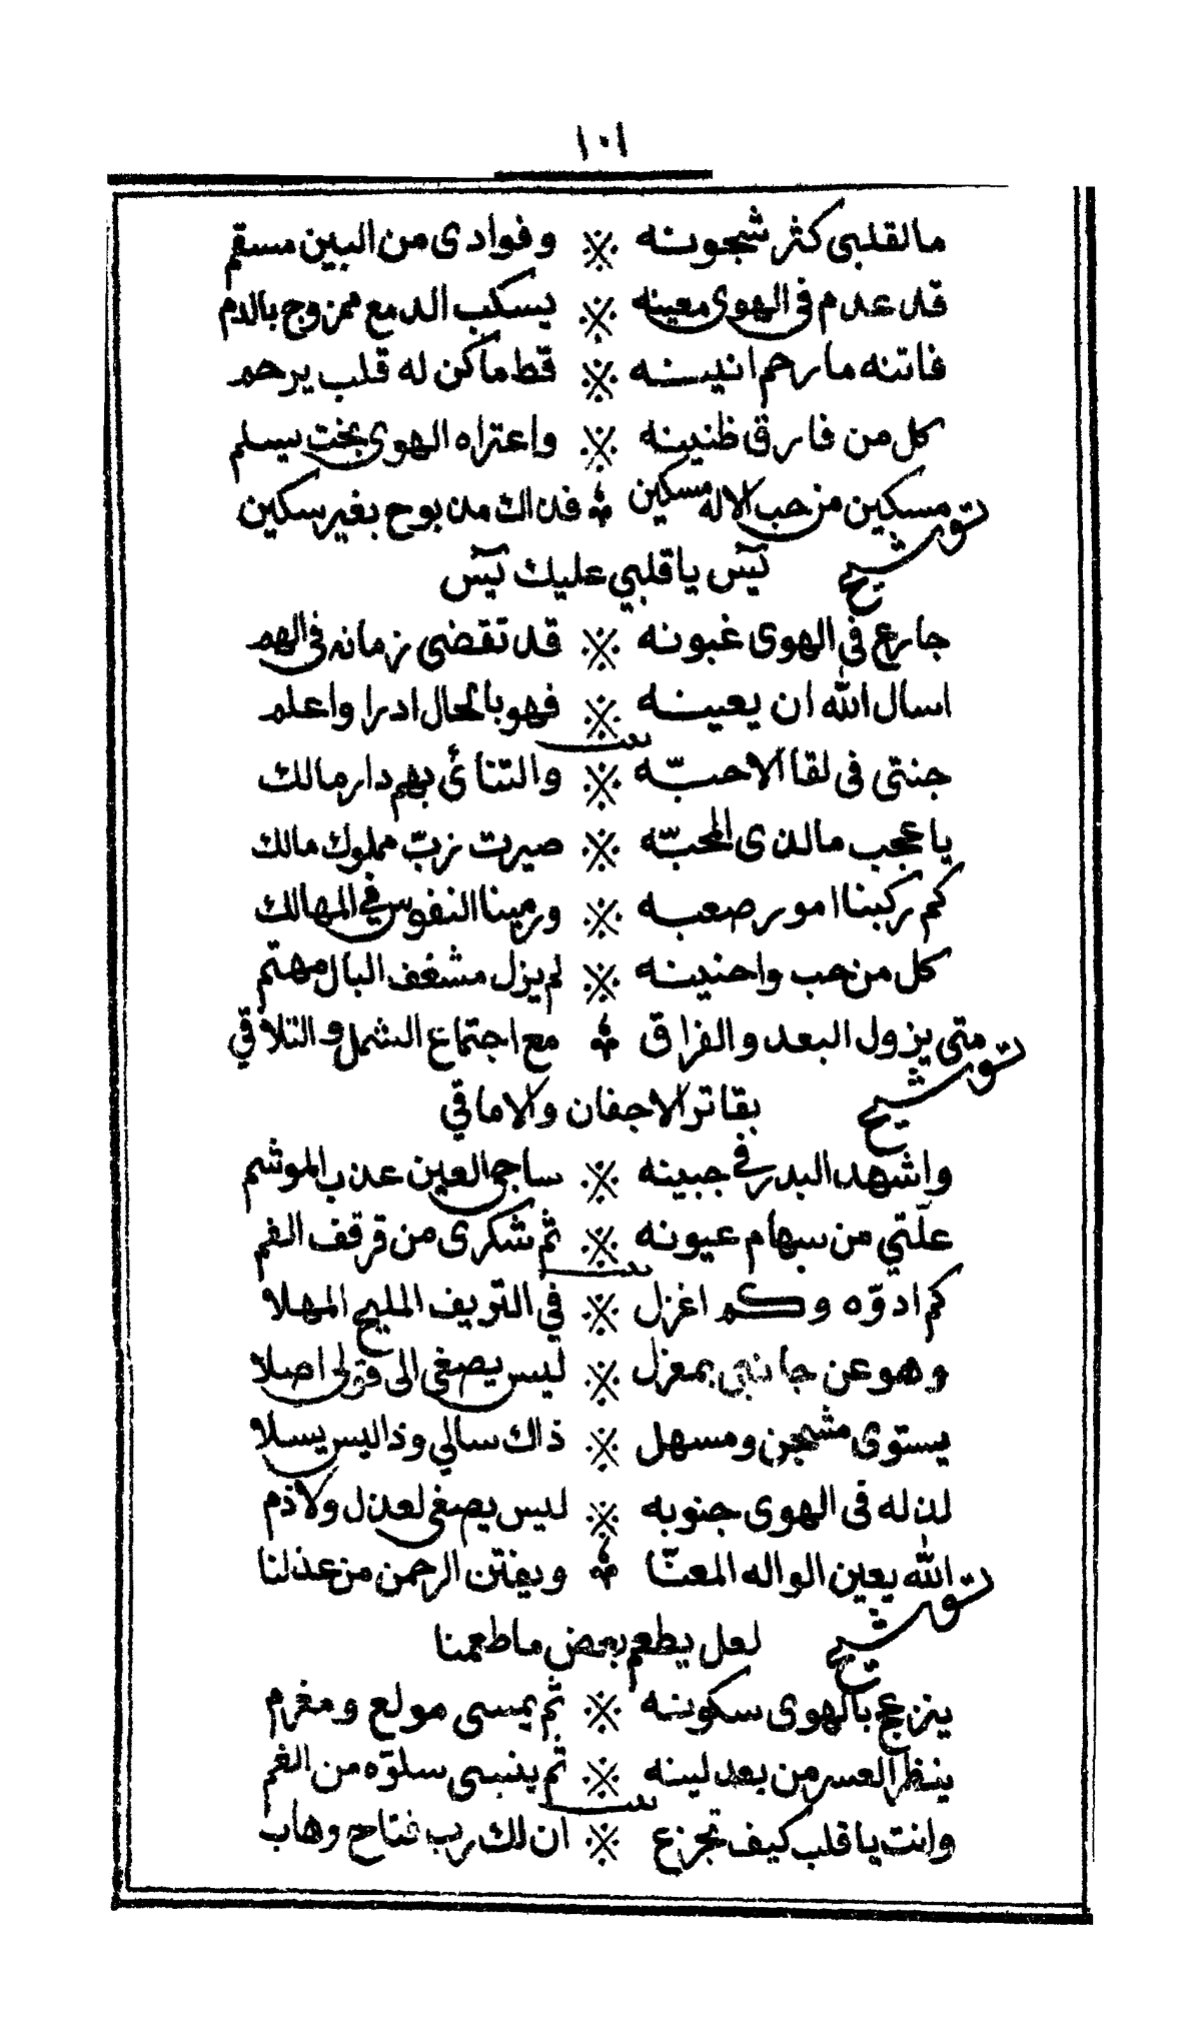 ١٠١
مالقلبي كثر شجونه ※ وفوادى من البين مسقم
قد عدم فى الهوى معينه ※ يسكب الدمع ممزوج بالدم
فاتنه مارحم انينه ※ قط ماكن له قلب يرحم
كل من فارق ظنينه ※ واعتراه الهوى بخت يسلم
توشيح مسكين من حب الاله مسكين ؞ فذاك من بوح بغير سكين
ليّس ياقلبي عليك ليّس
جارع فى الهوى غبونه ※ قد تقضى زمانه فى الهم
اسال الله ان يعينه ※ فهو بالحال ادرا واعلم
بيت
جنتى فى لقا الاحبّه ※ والتنائى بهم دار مالك
ياعجب مالذى المحبّه ※ صيرت ربّ مملوك مالك
كم ركبنا امور صعبه ※ ورمينا النفوس فى المهالك
كل من حب واحنينه ※ لم يزل مشغف البال مهتم
توشيح متى يزول البعد والفراق ؞ مع اجتماع الشمل والتلاقي
بفاتر الاجفان والاماقي
واشهد البدر في جبينه ※ ساجى العين عذب الموشم
علّتي من سهام عيونه ※ ثم شكرى من قرقف الفم
بيت
كم ادوّه وكم اغزل ※ في التريف المليح المهلا
وهو عن جانبي بمعزل ※ ليس يصغى الى قولى اصلا
يستوى مشجن ومسهل ※ ذاك سالي وذا ليس يسلا
لذ له فى الهوى جنوبه ※ ليس يصغى لعذل ولا ذم
توشيح الله يعين الواله المعنّا ؞ ويفتن الرحمن من عذلنا
لعل يطعم بعض ماطعمنا
ينزعج بالهوى سكونه ※ ثم يمسى مولع ومغرم
ينظر العسر من بعد لينه ※ ثم ينسى سلوّه من الغم
بيت
وانت ياقلب كيف تجزع ※ ان لك رب فتاح وهاب